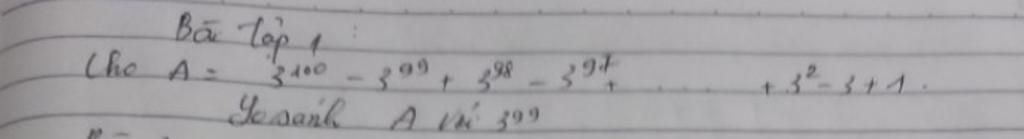 Bài tập 1 :
Cho A = 3¹⁰⁰ - 3⁹⁹ + 3⁹⁸ - 3⁹⁷ + . . . . + 3² - 3 + 1 .
So sánh A với 3⁹⁹